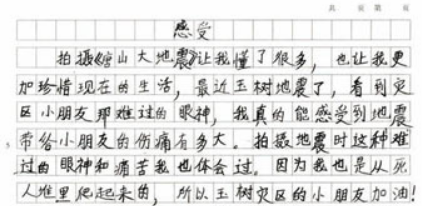 共 页 第 页
感受
拍摄《唐山大地震》让我懂了很多，也让我更
加珍惜现在的生活，最近玉树地震了，看到灾
区小朋友那难过的眼神，我真的能感受到地震
带给小朋友的伤痛有多大。拍摄地震时这种难
5
过的眼神和痛苦我也体会过。因为我也是从死
人堆里爬起来的，所以玉树灾区的小朋友加油！